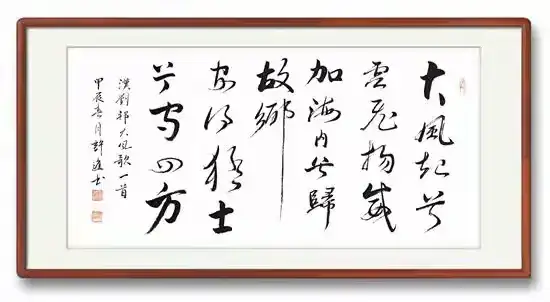 大風起兮
雲飛揚威
加海内兮歸
故鄉
安得猛士
兮守四方
漢劉邦大風歌一首
甲辰春月許書